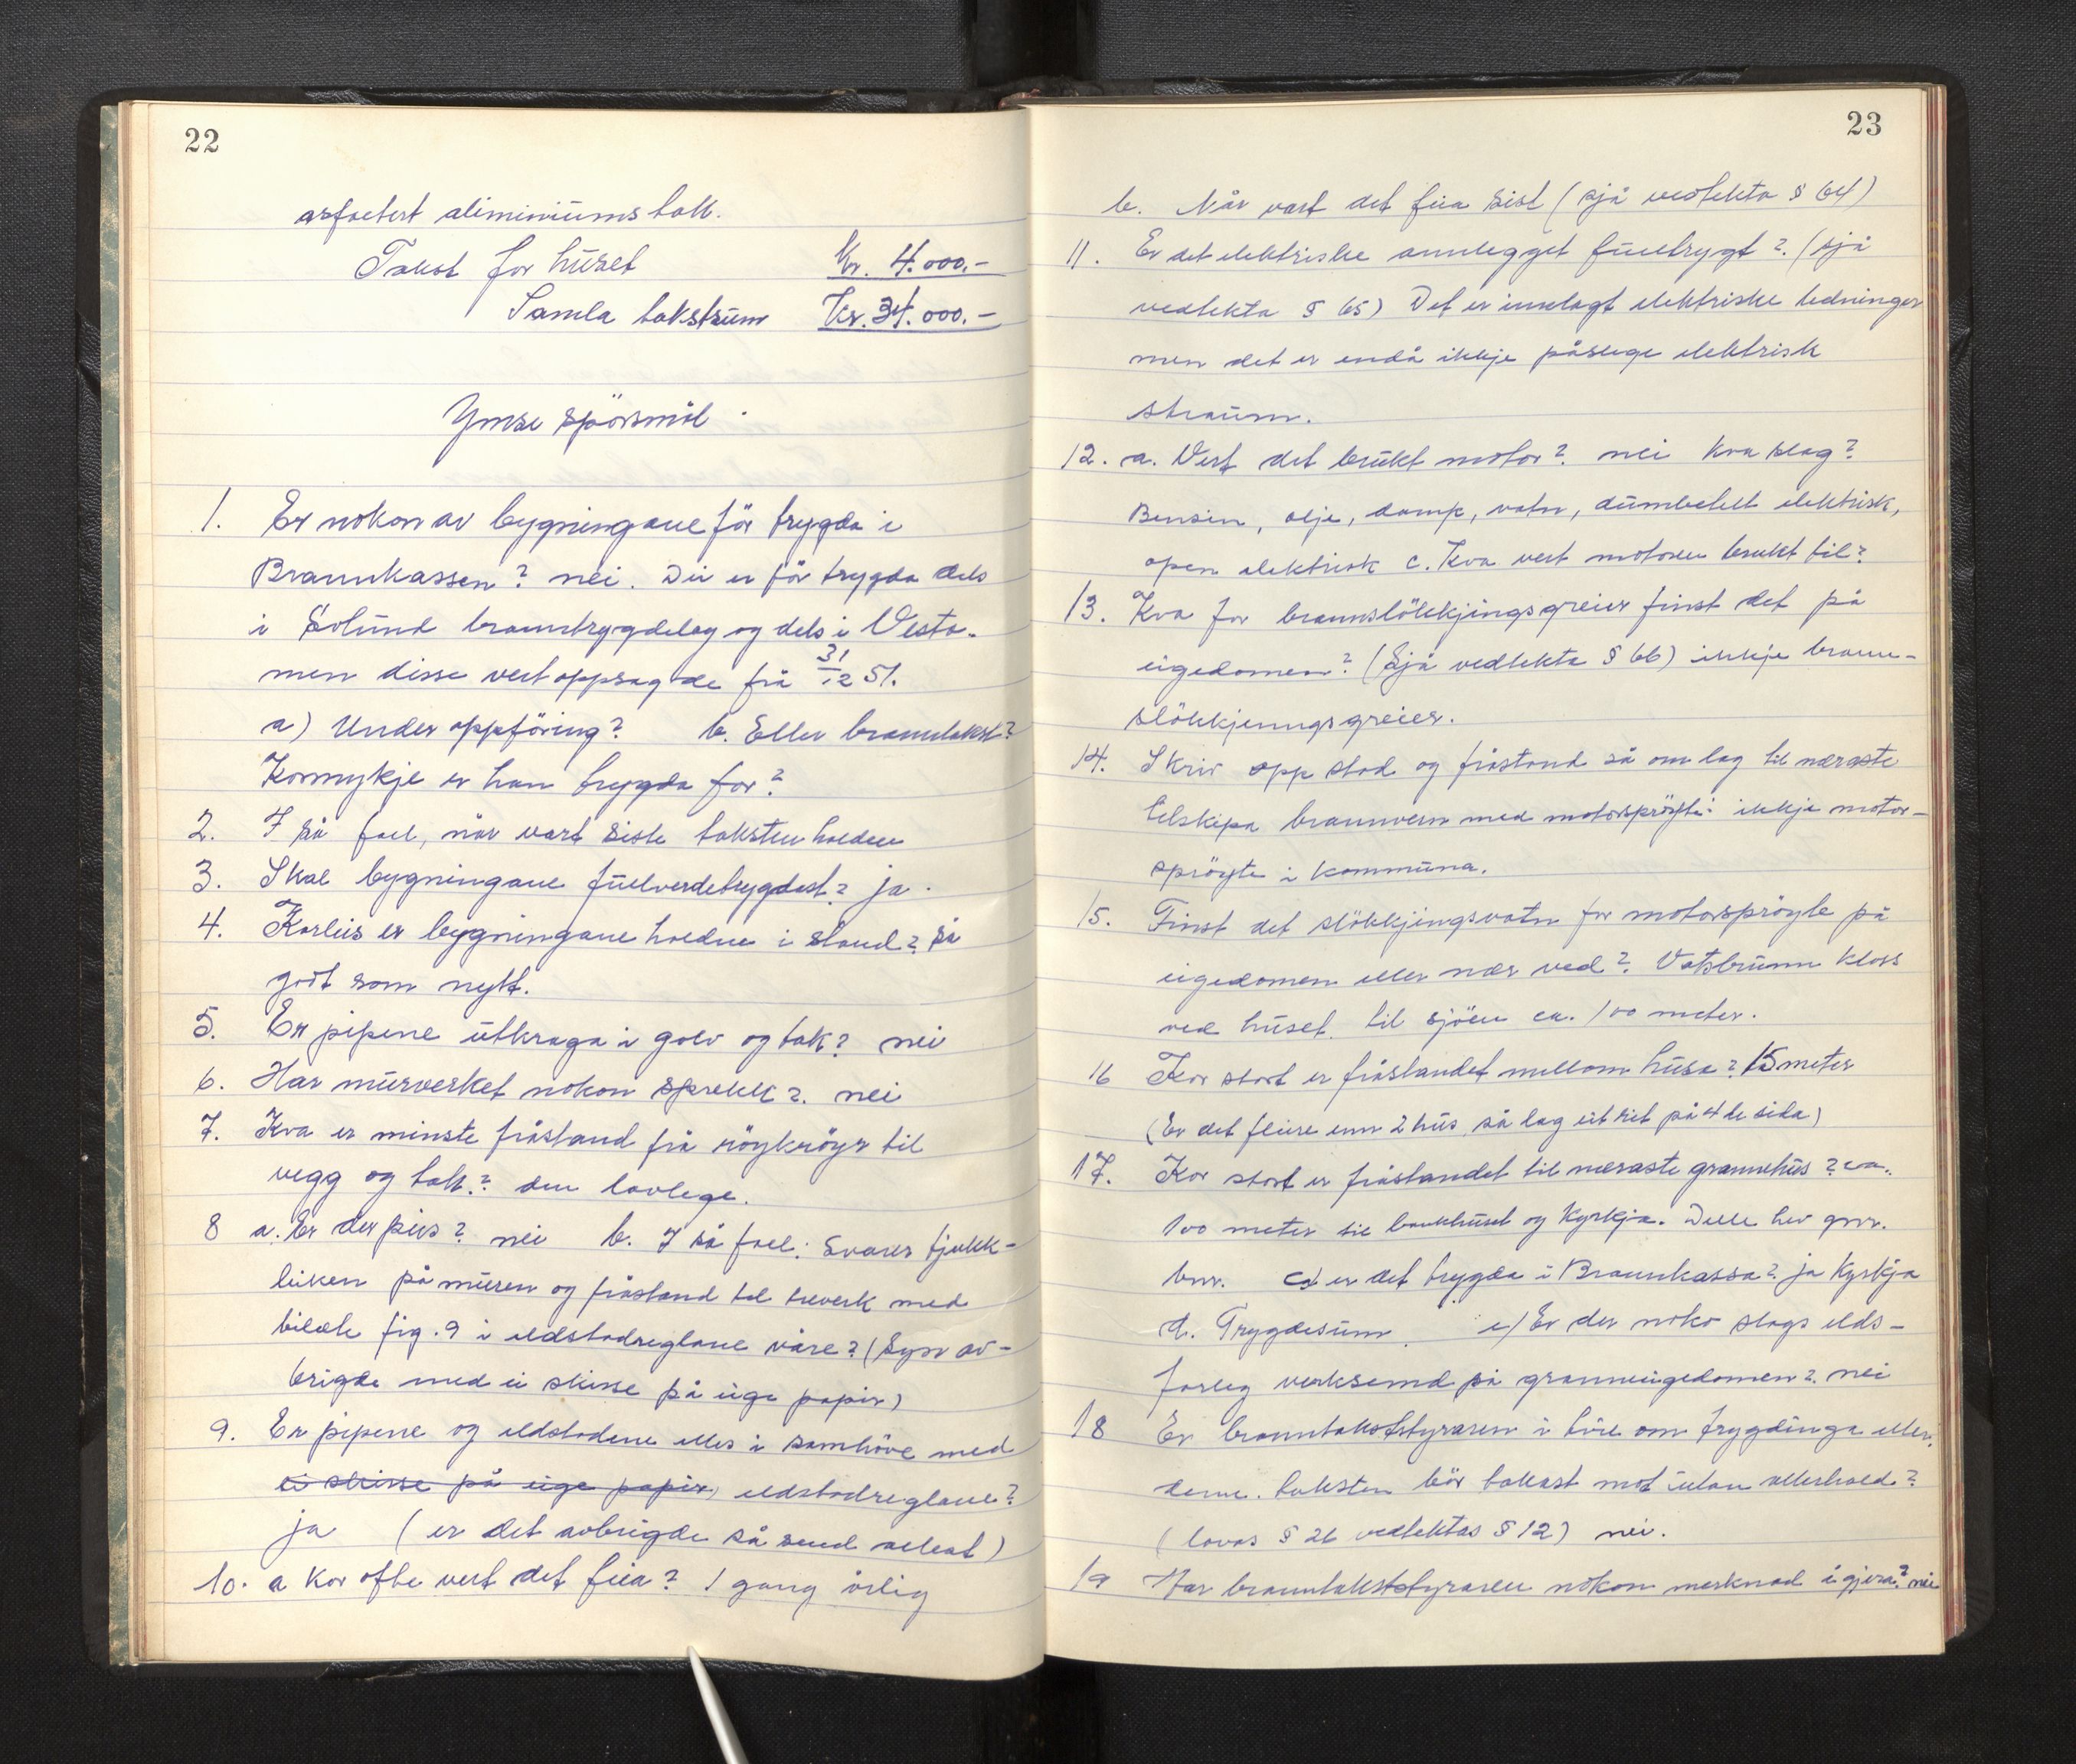 22
asfaetert aliminiums takk.
Takst for huset Kr. 4.000.-
Samla takstsum Kr. 34.000.-
Ymse spörsmål.
1. Er nokon av bygningane för trygda i
Brannkassen? nei. Dei er för trygda dels
i branntrygdelag og dels i Vesta.
men disse vert oppsagde frå 31/12 51.
a) Under oppföring? b. Eller branntakst?
Kormykje er han trygda for?
2. I så fall, når vart siste taksten halden
3. Skal bygningane fullverdetrygdast? ja.
4. Korleis er bygningane haldne i stand? så
godt som nytt.
5. Er pipene utkraga i golv og tak? nei
6. Har murverket nokon sprekk? nei
7. Kva er minste fråstand frå röykröyr til
vegg og tak? den lovlege.
8 a. Er der peis? nei b. I så fall: Svarer tjukk-
leiken på muren og fråstand til treverk med
bilæte fig. 9 i eldstadreglane våre? (Syn av-
brigde med ei skisse på eige papir)
9. Er pipene og eldstadene elles i samhöve med
ei skisse på eige papir) eldstadreglane?
ja (er det avbrigde så send attest)
10. a Kor ofte vert det feia? 1 gang årlig
23
b. Når vart det feia sist (sjå vedtekta § 64)
11. Er det elektriske annlegget fulltrygt? (sjå
vedtekta § 65) Det er innlagt elektriske ledninger
men det er endå ikkje påslege elektrisk
straum.
12. a. Vert det brukt motor? nei Kva slag?
Bensin, olje, damp, vatn, dumbelelt elektrisk,
open elektrisk c. Kva vert motoren brukt til?
13. Kva for brannslökkjingsgreier finst det på
eigedomen? (Sjå vedtekta § 66) ikkje brann-
slökkjinngsgreier.
14. Skriv opp stad og fråstand så om lag til næraste
tilskipa brannvern med motorspröyte: ikkje motor-
spröyte i kommuna.
15. Finst det slökkjingsvatn for motorspröyte på
eigedomen eller nær ved? Vatsbrunn kloss
ved huset. til sjöen ca. 100 meter.
16 Kor stort er fråstandet mellom husa? 15 meter
(Er det fleire enn 2 hus, så lag eit rit på 4 de sida)
17. Kor stort er fråstandet til næraste grannehus? ca.
100 meter til bankhuset og Kyrkja. Dette hev gnr.
bnr. c) er det trygda i Brannkassa? ja Kyrkja
d. Trygdesum e) Er der noko slags elds-
farleg verksemd på granneigedomen? nei
18 Er branntakststyraren i tvil om trygdinga eller
denne taksten bör takast mot utan atterhald?
(lovas § 26 vedtektas § 12) nei.
19 Har branntakststyraren nokon merknad å gjera? nei